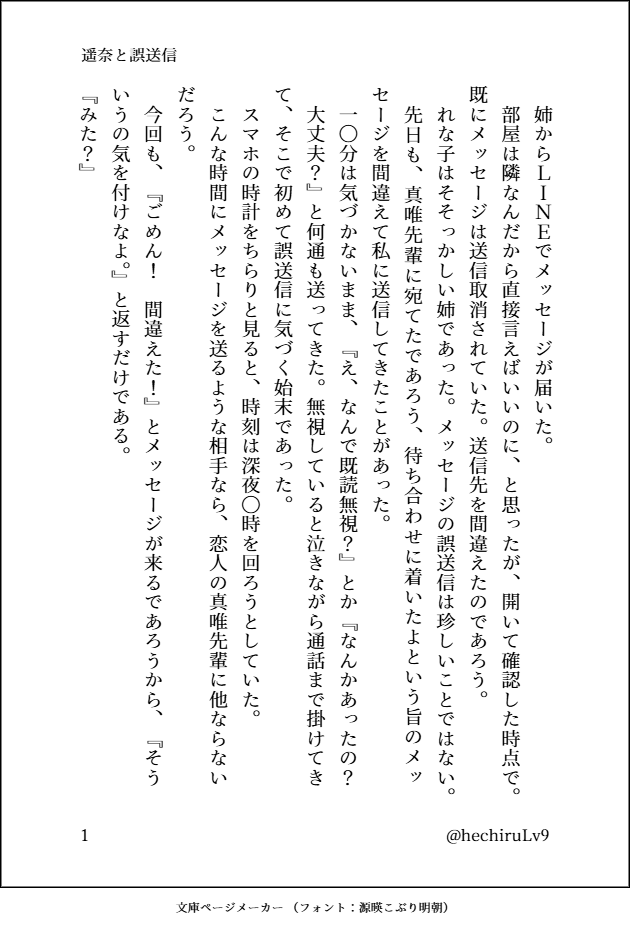 遥奈と誤送信
　姉からＬＩＮＥでメッセージが届いた。
　部屋は隣なんだから直接言えばいいのに、と思ったが、開いて確認した時点で。
既にメッセージは送信取消されていた。送信先を間違えたのであろう。
　れな子はそそっかしい姉であった。メッセージの誤送信は珍しいことではない。
　先日も、真唯先輩に宛てたであろう、待ち合わせに着いたよという旨のメッ
セージを間違えて私に送信してきたことがあった。
　一〇分は気づかないまま、『え、なんで既読無視？』とか『なんかあったの？
　大丈夫？』と何通も送ってきた。無視していると泣きながら通話まで掛けてき
て、そこで初めて誤送信に気づく始末であった。
　スマホの時計をちらりと見ると、時刻は深夜〇時を回ろうとしていた。
　こんな時間にメッセージを送るような相手なら、恋人の真唯先輩に他ならない
だろう。
　今回も、『ごめん！　間違えた！』とメッセージが来るであろうから、『そう
いうの気を付けなよ。』と返すだけである。
『みた？』
1
@hechiruLv9
文庫ページメーカー（フォント：源暎こぶり明朝）